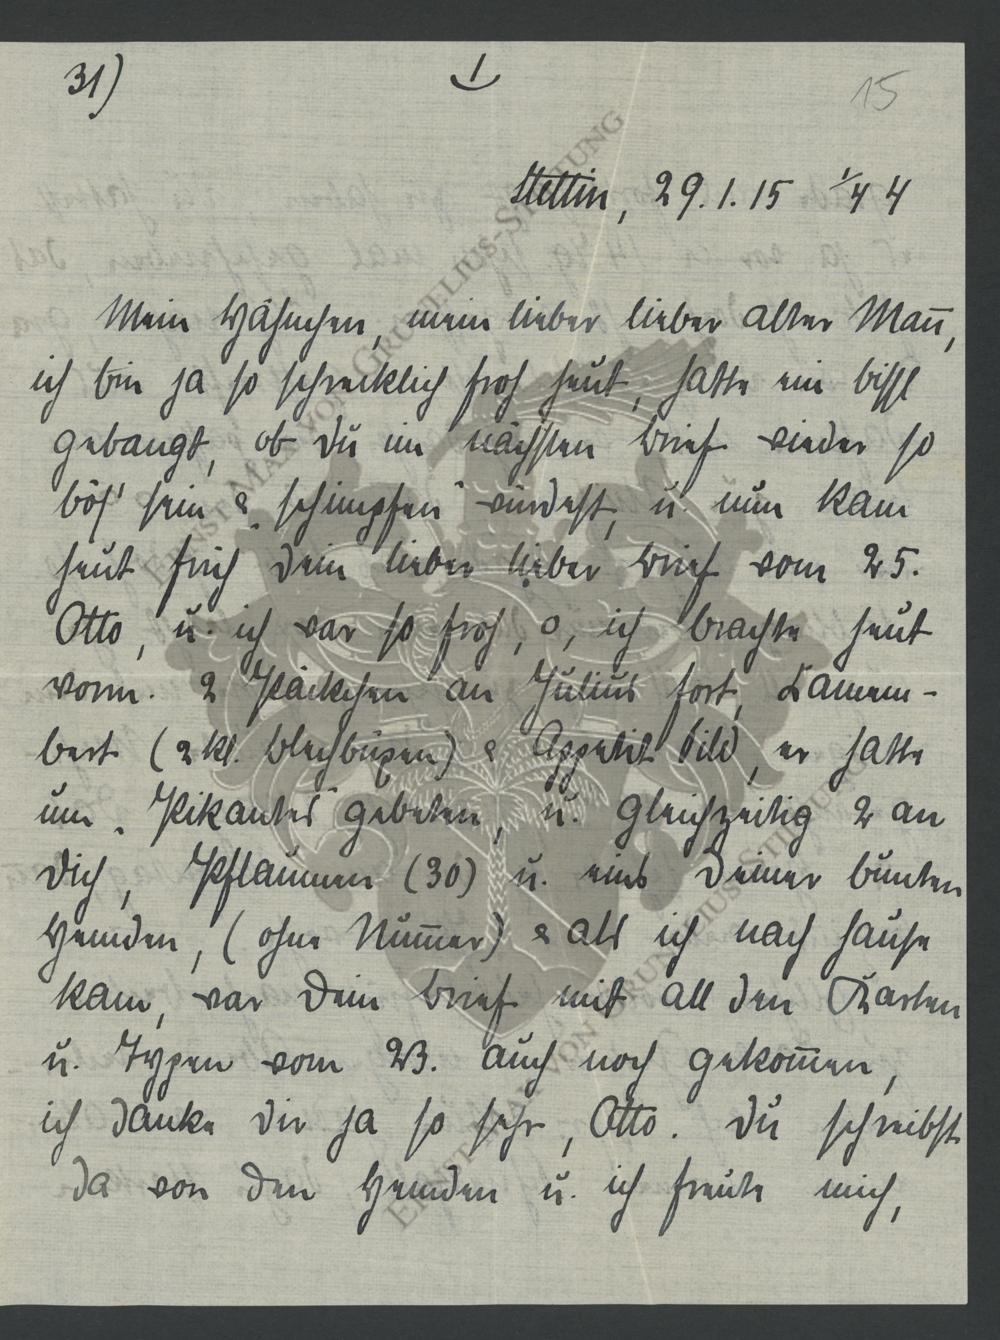 31) 1 15
Stettin, 29.1.15 1/4 4
Mein Hähnchen, mein lieber lieber alter Mañ,
ich bin ja so schrecklich froh heut, hatte ein bissl
gebangt, ob Du im nächsten Brief wieder so
bös' sein & "schimpfen" würdest, u. nun kam
heut früh Dein lieber lieber Brief vom 25.
Otto, u. ich war so froh, o, ich brachte heut
vorm. 2 Päckchen an Julius fort, Camem-
bert (2 kl. Blechbüxen) & Appetit Sild, er hatte
um "Pikantes" gebeten, u. gleichzeitig 2 an
Dich, Pflaumen (30) u. eins Deiner bunten
Hemden, (ohne Num̄er) & als ich nach Hause
kam, war Dein Brief mit all den Karten
u. Typen vom 23. auch noch gekom̄en,
ich danke Dir ja so sehr, Otto. Du schreibst
da von den Hemden u. ich freute mich,
ERNST MAX VON GRUNELIUS-STIFTUNG
ERNST MAX VON GRUNELIUS-STIFTUNG